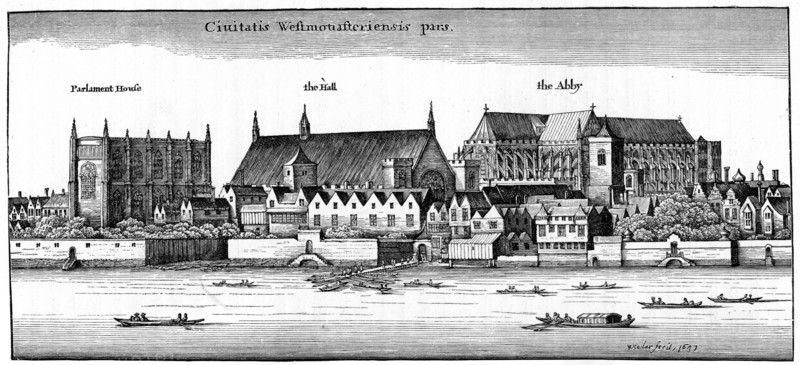 Ciuitatis Westmonasteriensis pars.
Parlament House
the Hall
the Abby
WHollar fecit, 1647